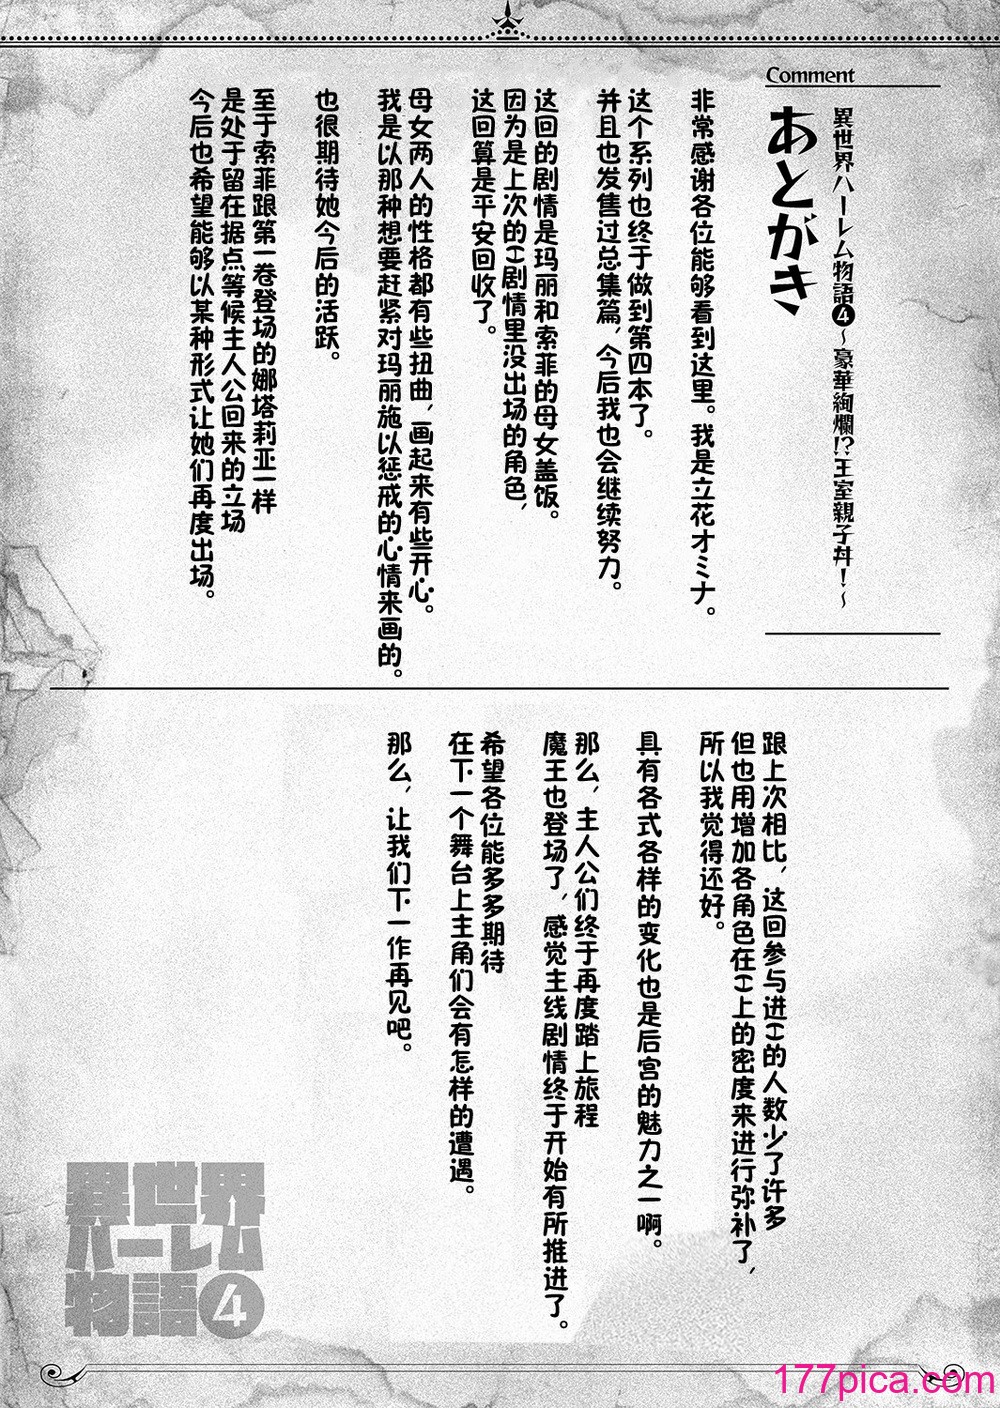 Comment
異世界ハーレム物語❹～豪華絢爛!?王室親子丼！～
あとがき
非常感谢各位能够看到这里。我是立花オミナ。
这个系列也终于做到第四本了。
并且也发售过总集篇，今后我也会继续努力。
这回的剧情是玛丽和索菲的母女盖饭。
因为是上次的H剧情里没出场的角色，
这回算是平安回收了。
母女两人的性格都有些扭曲，画起来有些开心。
我是以那种想要赶紧对玛丽施以惩戒的心情来画的。
也很期待她今后的活跃。
至于索菲跟第一卷登场的娜塔莉亚一样
是处于留在据点等候主人公回来的立场
今后也希望能够以某种形式让她们再度出场。
跟上次相比，这回参与进H的人数少了许多
但也用增加各角色在H上的密度来进行弥补了，
所以我觉得还好。
具有各式各样的变化也是后宫的魅力之一啊。
那么，主人公们终于再度踏上旅程
魔王也登场了，感觉主线剧情终于开始有所推进了。
希望各位能多多期待
在下一个舞台上主角们会有怎样的遭遇。
那么，让我们下一作再见吧。
異世界
ハーレム
物語❹
177pica.com